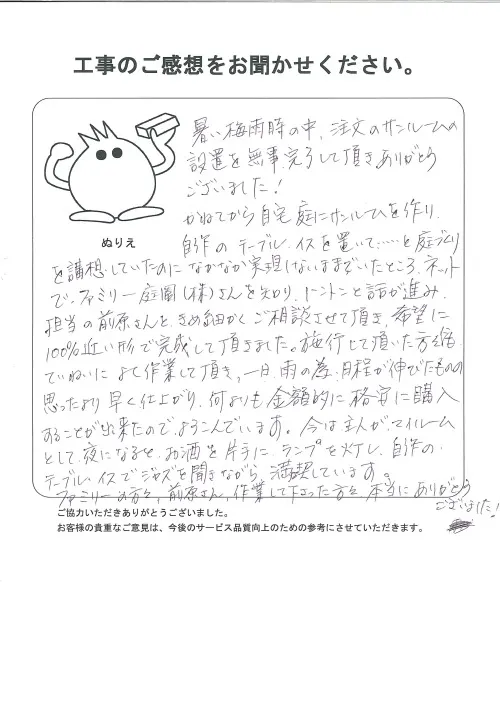 工事のご感想をお聞かせください。
暑い梅雨時の中、注文のサンルームの
設置を無事完了して頂きありがとう
ございました！
かねてから自宅庭にサンルームを作り、
ぬりえ
自作のテーブル、イスを置いて……と庭づくり
を構想していたのになかなか実現しないままでいたところ、ネット
で、ファミリー庭園(株)さんを知り、トントンと話が進み、
担当の前原さんと、きめ細かくご相談させて頂き、希望に
100%近い形で完成して頂きました。施行して頂いた方々も
ていねいによく作業して頂き、一日、雨の為、日程が伸びたものの
思ったより早く仕上がり、何よりも金額的に格安に購入
することが出来たのでよろこんでいます。今は主人がマイルーム
として、夜になると、お酒を片手に、ランプを灯し、自作の
テーブル、イスでジャズを聞きながら、満喫しています。
ファミリーの方々、前原さん、作業して下さった方々、本当にありがとう
ございました！
ご協力いただきありがとうございました。
お客様の貴重なご意見は、今後のサービス品質向上のための参考にさせていただきます。